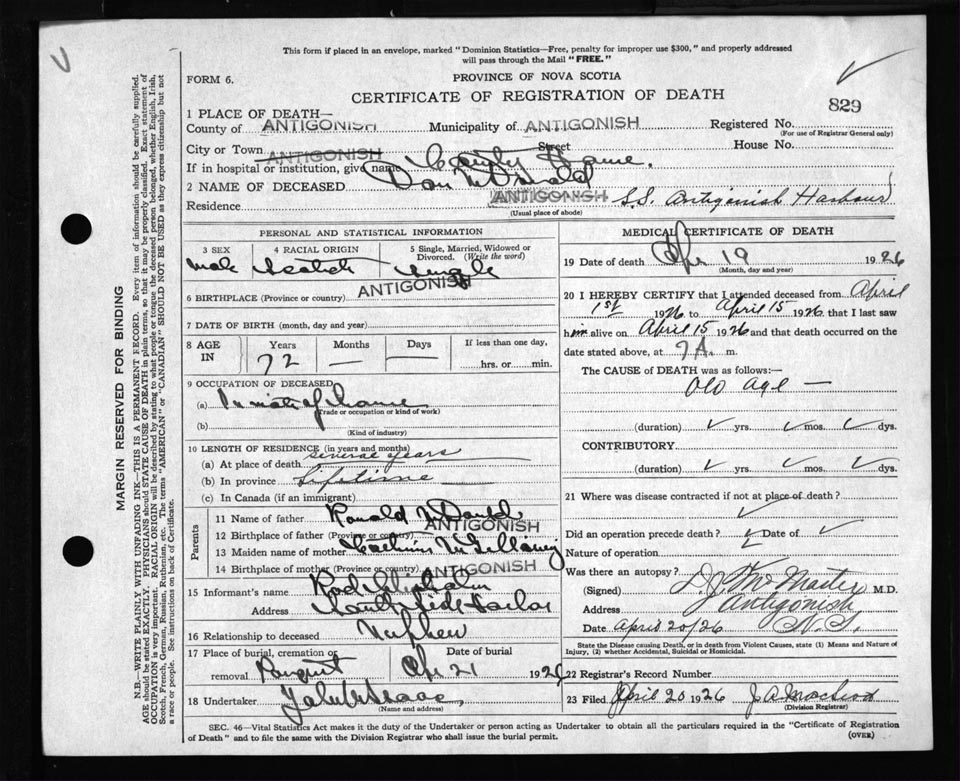 This form if placed in an envelope, marked "Dominion Statistics—Free, penalty for improper use $300," and properly addressed
will pass through the Mail "FREE."
FORM 6.
PROVINCE OF NOVA SCOTIA
CERTIFICATE OF REGISTRATION OF DEATH
829
1 PLACE OF DEATH—
County of ANTIGONISH Municipality of ANTIGONISH Registered No.
(For use of Registrar General only)
City or Town ANTIGONISH Street House No.
If in hospital or institution, give name County Home.
2 NAME OF DECEASED Dan McDonald
Residence ANTIGONISH S.S. Antigonish Harbour
(Usual place of abode)
PERSONAL AND STATISTICAL INFORMATION
3 SEX 4 RACIAL ORIGIN 5 Single, Married, Widowed or Divorced. (Write the word)
Male Scotch Single
6 BIRTHPLACE (Province or country) ANTIGONISH
7 DATE OF BIRTH (month, day and year)
8 AGE IN Years Months Days If less than one day,
72 — — hrs. or min.
9 OCCUPATION OF DECEASED
(a) Inmate of Home
(Trade or occupation or kind of work)
(b)
(Kind of industry)
10 LENGTH OF RESIDENCE (in years and months)
(a) At place of death several years
(b) In province Lifetime
(c) In Canada (if an immigrant)
Parents
11 Name of father Ronald McDonald
12 Birthplace of father (Province or country) ANTIGONISH
13 Maiden name of mother
14 Birthplace of mother (Province or country) ANTIGONISH
15 Informant's name Rod Chisholm
Address South Side Harbor
16 Relationship to deceased Nephew
17 Place of burial, cremation or removal Date of burial
Apr 21 1926
18 Undertaker
(Name and address)
MEDICAL CERTIFICATE OF DEATH
19 Date of death Apr 19 1926
(Month, day and year)
20 I HEREBY CERTIFY that I attended deceased from April
1st 1926 to April 15 1926 that I last saw
him alive on April 15 1926 and that death occurred on
date stated above, at 7 A. m.
The CAUSE of DEATH was as follows:—
Old Age —
(duration) yrs. mos. dys.
CONTRIBUTORY.
(duration) yrs. mos. dys.
21 Where was disease contracted if not at place of death?
Did an operation precede death? Date of
Nature of operation
Was there an autopsy?
(Signed) McMaster M.D.
Address Antigonish
Date April 20/26 N.S.
State the Disease causing Death, or in death from Violent Causes, state (1) Means and Nature of
Injury, (2) whether Accidental, Suicidal or Homicidal.
22 Registrar's Record Number
23 Filed April 20 1926 J A MacLeod
(Division Registrar)
SEC. 46—Vital Statistics Act makes it the duty of the Undertaker or person acting as Undertaker to obtain all the particulars required in the "Certificate of Registration
of Death" and to file the same with the Division Registrar who shall issue the burial permit.
(OVER)
MARGIN RESERVED FOR BINDING
N.B.—WRITE PLAINLY WITH UNFADING INK—THIS IS A PERMANENT RECORD. Every item of information should be carefully supplied.
AGE should be stated EXACTLY. PHYSICIANS should STATE CAUSE OF DEATH in plain terms, so that it may be properly classified. Exact statement of
OCCUPATION is very important. RACIAL ORIGIN will be described by stating to what people or tongue the deceased person belonged, whether English, Irish,
Scotch, French, German, Russian, Ruthenian, etc. The terms "AMERICAN" or "CANADIAN" SHOULD NOT BE USED as they express citizenship but not
a race or people. See instructions on back of Certificate.